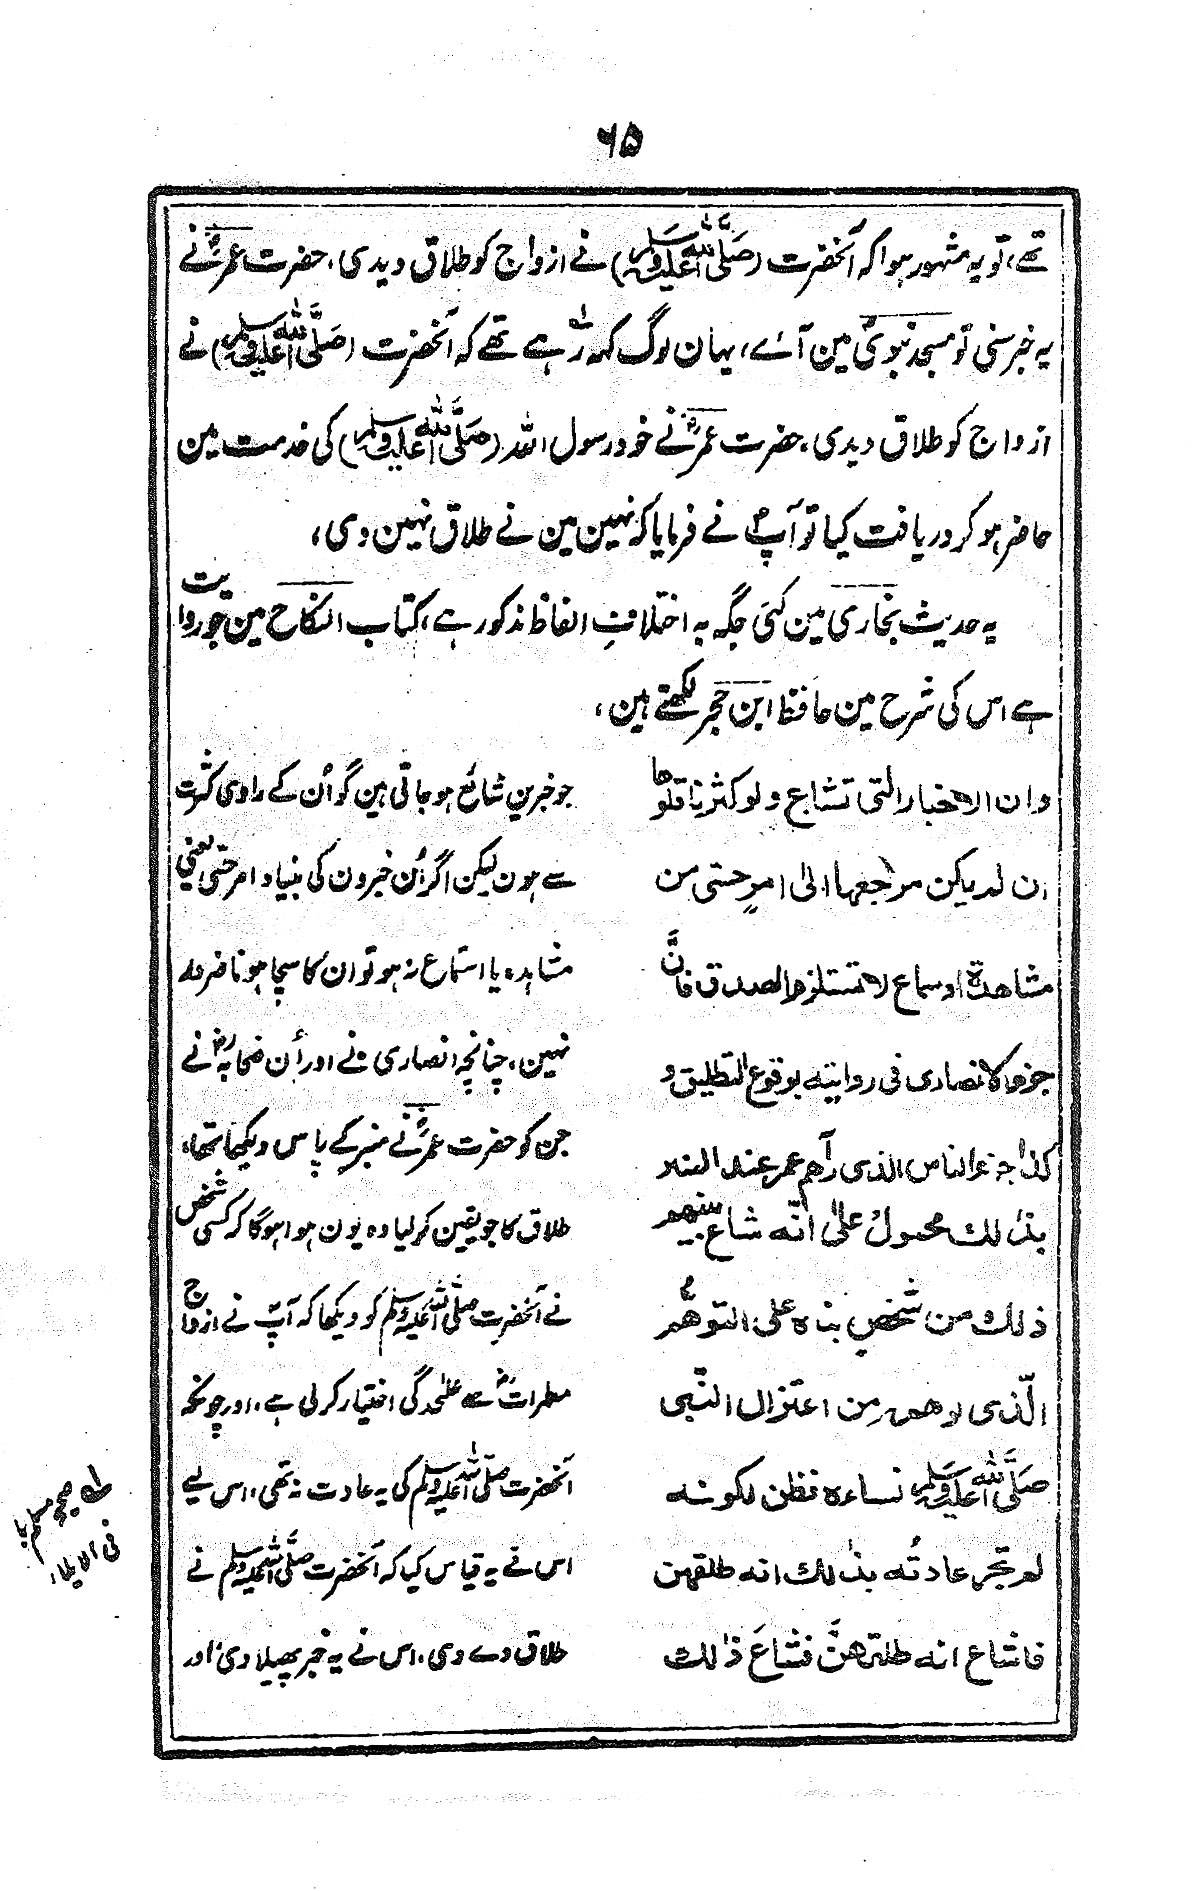 ۶۵
تھے، تو یہ مشہور ہوا کہ آنحضرت (صلی اللہ علیہ وسلم) نے ازواج کو طلاق دیدی، حضرت عمرؓ نے
یہ خبر سنی تو مسجد نبویؐ مین آئے، یہان لوگ کہہ رہے تھے کہ آنحضرت (صلی اللہ علیہ وسلم) نے
ازواج کو طلاق دیدی، حضرت عمرؓ نے خود رسول اللہ (صلی اللہ علیہ وسلم) کی خدمت مین
حاضر ہو کر دریافت کیا تو آپؐ نے فرمایا کہ نہین مین نے طلاق نہین دی،
یہ حدیث بخاری مین کئی جگہ بہ اختلافِ الفاظ مذکور ہے، کتاب النکاح مین جو روایت
ہے اس کی شرح مین حافظ ابن حجر لکھتے ہین،
وان الاخبار التی تشاع ولو کثر ناقلوھا
ان لم یکن مرجعھا الیٰ امرٍ حسّی من
مشاھدۃ او سماع لا تستلزم الصدق فانّ
جزم الانصاری فی روایتہ بوقوع التطلیق و
کذا جزم الناس الذی رآھم عمر عند المنبر
بذٰلک محمول علیٰ انّہ شاع بینھم
ذٰلک من شخصٍ بناہ علی التوھّم
الّذی توھمہ من اعتزال النّبی
صلی اللہ علیہ وسلم نساءہ فظن لکونہ
لم تجر عادتُہ بذٰلک انہ طلقھن
فاشاع انہ طلقھنّ فشاعَ ذٰلک
جو خبرین شائع ہو جاتی ہین گو اُن کے راوی کثرت
سے ہون لیکن اگر اُن خبرون کی بنیاد امر حسّی یعنی
مشاہدہ یا استماع نہ ہو تو ان کا سچا ہونا ضرور
نہین، چنانچہ انصاری نے اور اُن صحابہؓ نے
جن کو حضرت عمرؓ نے منبر کے پاس دیکھا تھا،
طلاق کا جو یقین کر لیا وہ یون ہوا ہوگا کہ کسی شخص
نے آنحضرت صلی اللہ علیہ وسلم کو دیکھا کہ آپؐ نے ازواج
مطہراتؓ سے علٰحدگی اختیار کر لی ہے، اور چونکہ
آنحضرت صلی اللہ علیہ وسلم کی یہ عادت نہ تھی، اس لیے
اس نے یہ قیاس کیا کہ آنحضرت صلی اللہ علیہ وسلم نے
طلاق دے دی، اس نے یہ خبر پھیلا دی، اور
صحیح مسلم باب
فی الایلاء